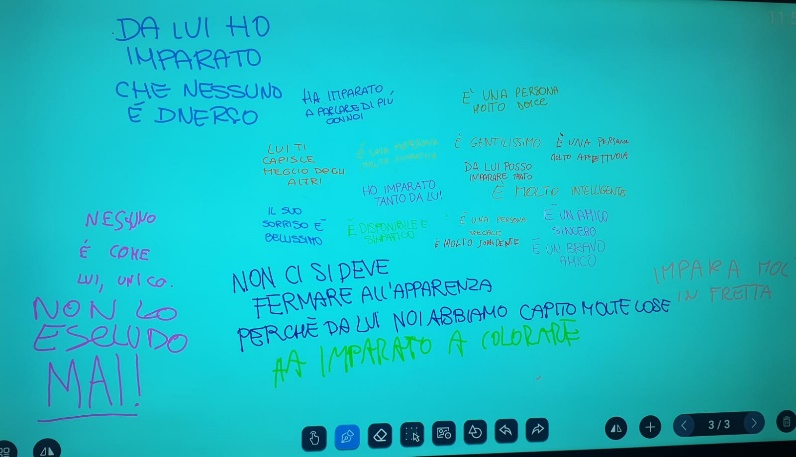 DA LUI HO
IMPARATO
CHE NESSUNO
È DIVERSO
HA IMPARATO
A PARLARE DI PIÙ
CON NOI
È UNA PERSONA
MOLTO DOLCE
LUI TI
CAPISCE
MEGLIO DEGLI
ALTRI
È UNA PERSONA
MOLTO
È GENTILISSIMO
È UNA PERSONA
MOLTO AFFETTUOSA
DA LUI POSSO
IMPARARE TANTO
HO IMPARATO
TANTO DA LUI
È MOLTO INTELLIGENTE
IL SUO
SORRISO È
BELLISSIMO
È DISPONIBILE E
SIMPATICO
È UNA PERSONA
E MOLTO SORRIDENTE
È UN AMICO
SINCERO
È UN BRAVO
AMICO
NESSUNO
È COME
LUI, UNICO.
NON LO
ESCLUDO
MAI!
NON CI SI DEVE
FERMARE ALL'APPARENZA
PERCHÈ DA LUI NOI ABBIAMO CAPITO MOLTE COSE
HA IMPARATO A COLORARE
IMPARA MOL
IN FRETTA
3/3